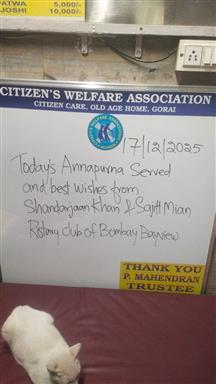 PATWA 5,000/-
JOSHI 10,000/-
CITIZEN'S WELFARE ASSOCIATION
CITIZEN CARE, OLD AGE HOME, GORAI
17/12/2025
Today's Annapurna Served
and best wishes from
Shandarjaan Khan & Sajit Mian
Rotary club of Bombay Bayview
THANK YOU
P. MAHENDRAN
TRUSTEE